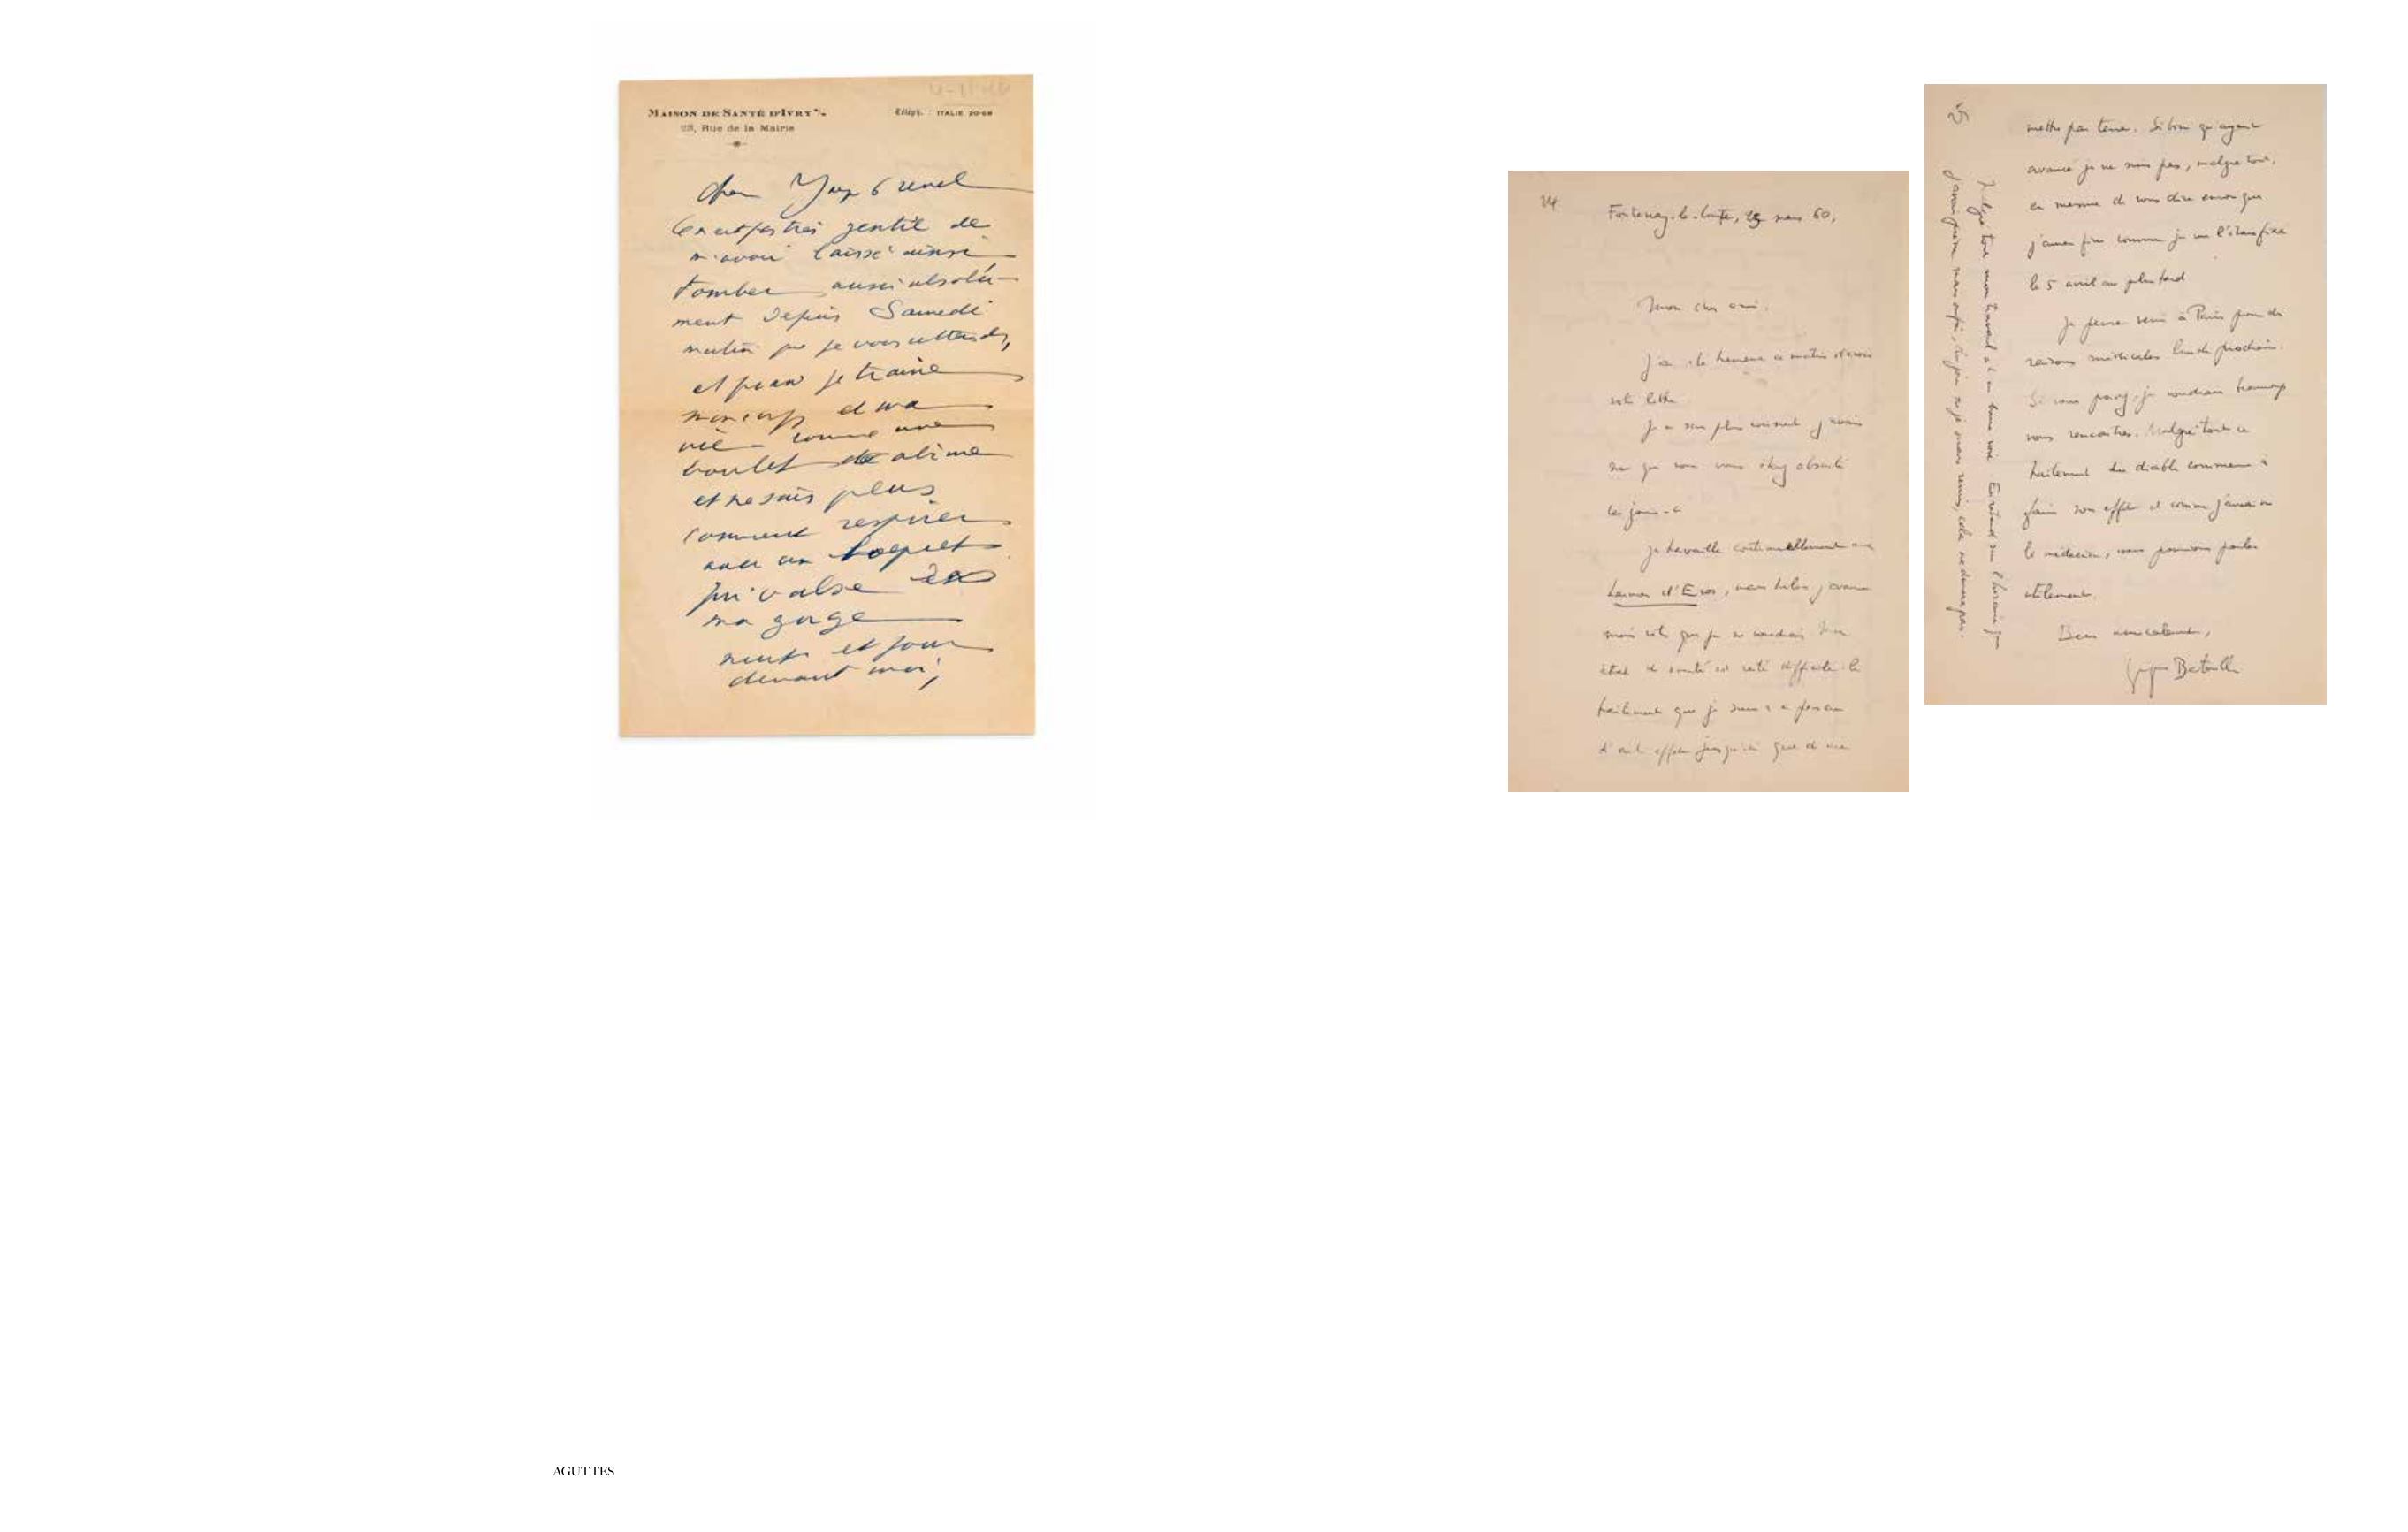 MAISON DE SANTÉ D'IVRY
23, Rue de la Mairie
Téléph. : ITALIE 20-68
gentil de
m'avoir laissé ainsi
tomber aussi absolu-
ment depuis Samedi
matin que je vous attends,
et je traîne
mon corps et ma
vie comme une
boulet abîme
et ne sais plus
comment respirer
avec un hoquet
qui valse
ma gorge
nuit et jour
devant moi,
24
Fontenay-le-Comte, mars 60,
Mon cher ami,
J'ai été heureux ce matin d'avoir
votre lettre
Je ne sais plus comment j'avais
su que vous vous étiez absenté
ces jours-ci
Je travaille continuellement aux
Larmes d'Eros, mais hélas, j'avance
moins vite que je ne voudrais Mon
état de santé est resté difficile le
traitement que je suis n'a pas eu
d'autre effet jusqu'ici que de me
25
mettre par terre. Si bien qu'ayant
avancé je ne suis pas, malgré tout,
en mesure de vous dire encore que
j'aurai fini comme je me l'étais fixé
le 5 avril au plus tard
Je pense venir à Paris pour des
raisons médicales lundi prochain.
Si vous pouvez, je voudrais beaucoup
vous rencontrer. Malgré tout ce
traitement du diable commence à
faire son effet et comme j'aurai vu
le médecin, nous pourrions parler
utilement.
Bien amicalement,
Georges Bataille
Malgré tout mon travail a été en bonne voie. En retard sur l'horaire que
j'avais prévu, mais enfin,
AGUTTES